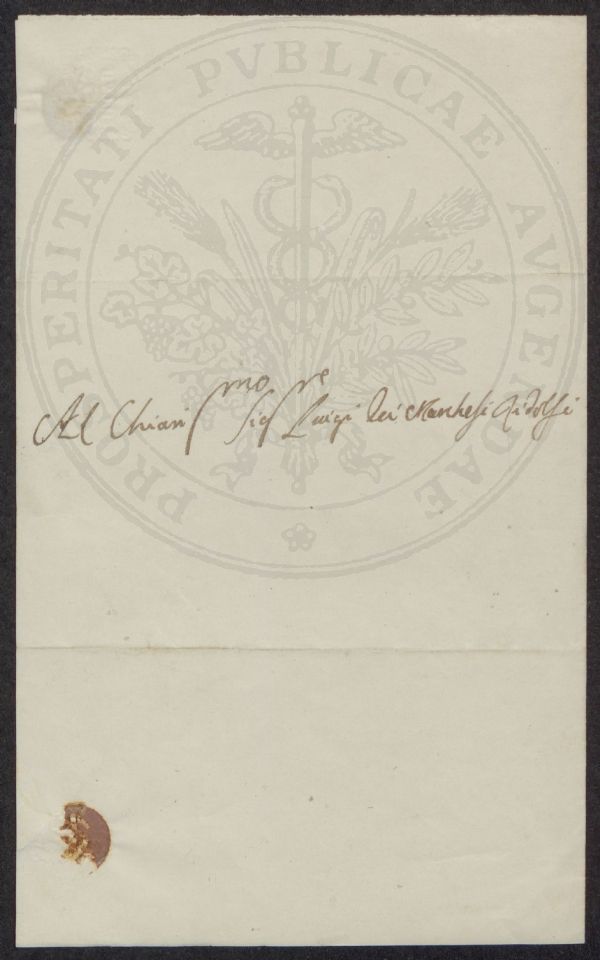 PROSPERITATI PVBLICAE AVGENDAE
Al Chiariss.mo Sig.re Luigi dei Marchesi Ridolfi